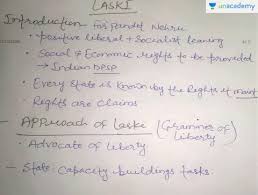 LASKI
unacademy
Introduction – For Pandit Nehru
• positive liberal + Socialist leaning
• Social & Economic rights to be provided
→ Indian DPSP
• Every State is known by the Rights it maint
• Rights are claims
— Approach of Laske (Grammer of Liberty)
– Advocate of liberty
– State: Capacity buildings tasks.